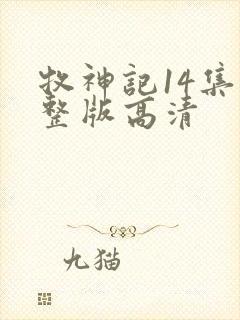 牧神記14集
整版高清
九猫